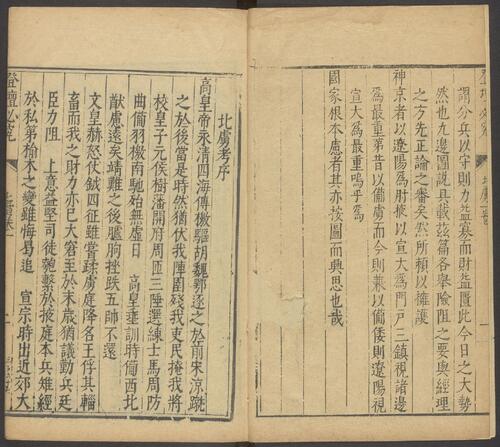 謂分兵以守則力益寡而財益匱此今日之大勢
然也九邊圖說具載茲篇各舉險阻之要與經理
之方先正論之審矣然所賴以擁護
神京者以遼陽爲肘掖以宣大爲門戶三鎮視諸邊
爲最重第昔以備虜而今則兼以備倭則遼陽視
宣大爲最重嗚乎爲
國家根本慮者其亦按圖而興思也哉
北虜考序
高皇帝永清四海傳檄驅胡魏鄂逐之於前宋涼蹴
之於後當是時然猶伏我陣圍殘我吏民掩我將
校皇子元侯樹藩開府周匝三陲選練士馬周防
曲備羽檄南馳始無虛日 高皇垂訓時僃西北
猷慮遠矣靖難之後臚朐挫跌五帥不還
文皇赫怒仗鉞四征雖嘗蹂虜庭降名王俘其輜
畜而我之財力亦已大窘至於末歲猶議勤兵廷
臣力阻 上意益堅司徒匏繫於掖庭本兵雉經
於私第榆木之變雖悔曷追 宣宗時出近郊大
登壇必究